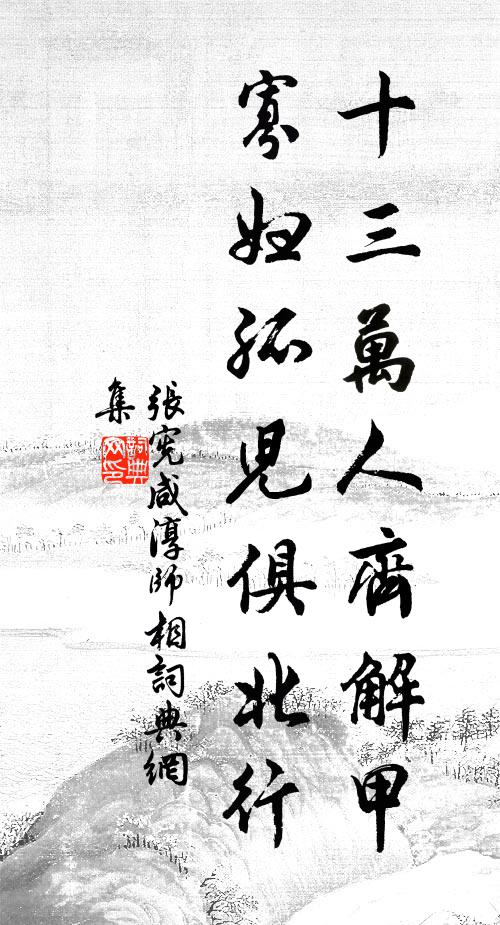 十三萬人齊解甲
寡婦孤兒俱北行
張憲咸淳師相詞典網
集
詞典網印